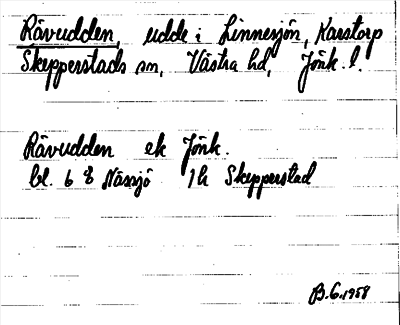 Rävudden, udde i Linnesjön, Karstorp
Skepperstads sn, Västra hd, Jönk. l.
Rävudden ek Jönk.
bl. 6 8 Nässjö 1h Skepperstad
B.G. 1958